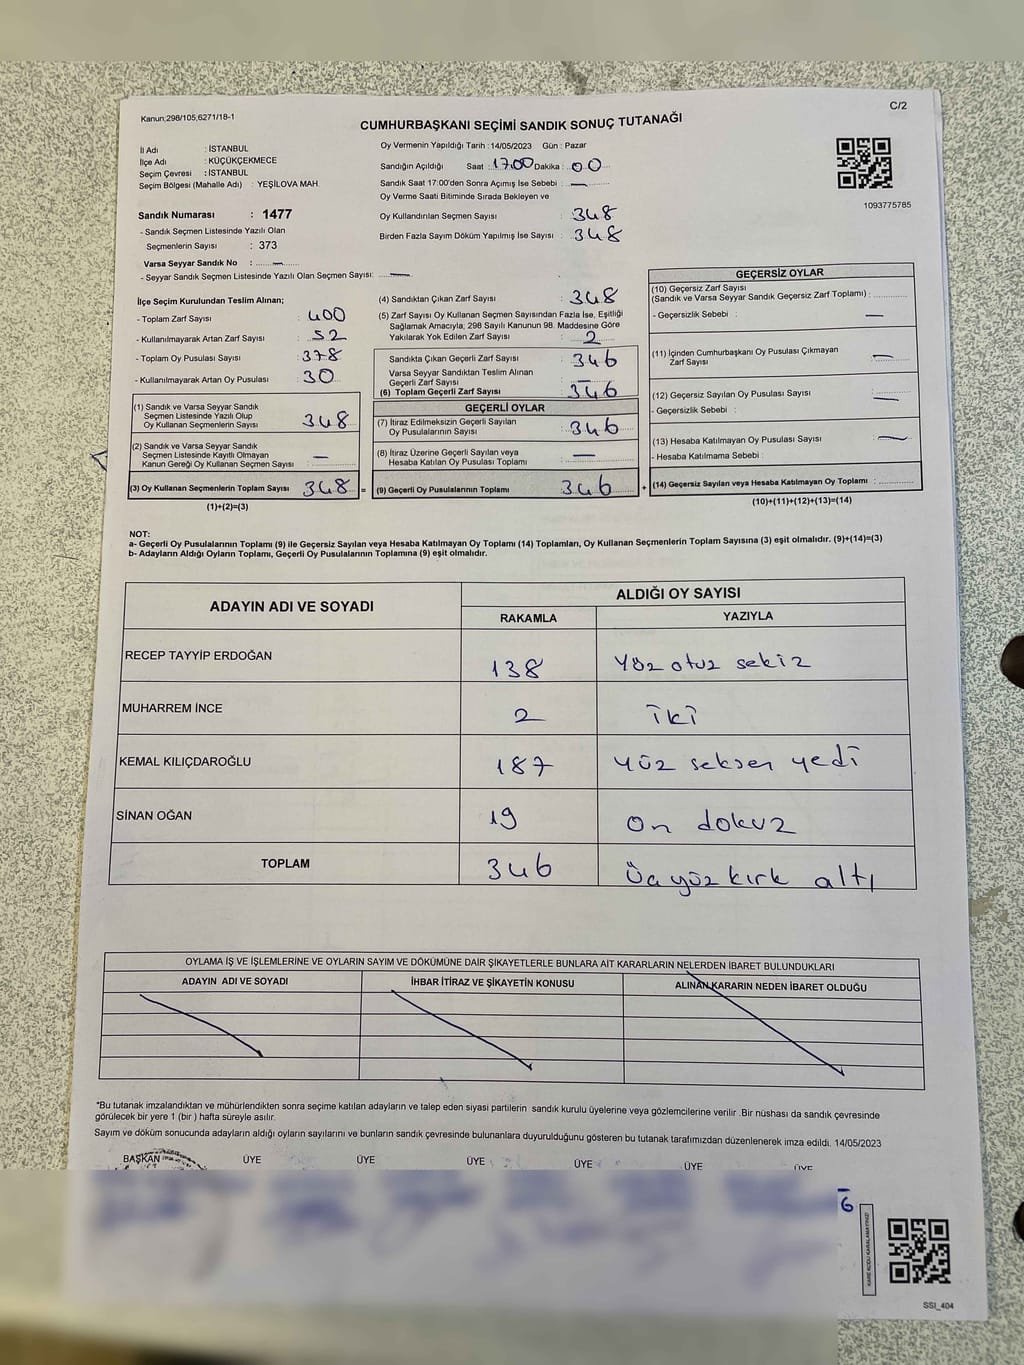 C/2
Kanun;298/105,6271/18-1
CUMHURBAŞKANI SEÇİMİ SANDIK SONUÇ TUTANAĞI
İl Adı : İSTANBUL
İlçe Adı : KÜÇÜKÇEKMECE
Seçim Çevresi : İSTANBUL
Seçim Bölgesi (Mahalle Adı) : YEŞİLOVA MAH.
Oy Vermenin Yapıldığı Tarih : 14/05/2023 Gün : Pazar
Sandığın Açıldığı Saat : 17.00 Dakika : 00
Sandık Saat 17:00'den Sonra Açımış İse Sebebi : —
Oy Verme Saati Bitiminde Sırada Bekleyen ve
Oy Kullandırılan Seçmen Sayısı : 348
Birden Fazla Sayım Döküm Yapılmış İse Sayısı : 348
1093775785
Sandık Numarası : 1477
- Sandık Seçmen Listesinde Yazılı Olan
Seçmenlerin Sayısı : 373
Varsa Seyyar Sandık No : —
- Seyyar Sandık Seçmen Listesinde Yazılı Olan Seçmen Sayısı: —
İlçe Seçim Kurulundan Teslim Alınan;
- Toplam Zarf Sayısı : 400
- Kullanılmayarak Artan Zarf Sayısı : 52
- Toplam Oy Pusulası Sayısı : 378
- Kullanılmayarak Artan Oy Pusulası : 30
(1) Sandık ve Varsa Seyyar Sandık
Seçmen Listesinde Yazılı Olup
Oy Kullanan Seçmenlerin Sayısı : 348
(2) Sandık ve Varsa Seyyar Sandık
Seçmen Listesinde Kayıtlı Olmayan
Kanun Gereği Oy Kullanan Seçmen Sayısı —
(3) Oy Kullanan Seçmenlerin Toplam Sayısı 348 =
(1)+(2)=(3)
(4) Sandıktan Çıkan Zarf Sayısı : 348
(5) Zarf Sayısı Oy Kullanan Seçmen Sayısından Fazla İse, Eşitliği
Sağlamak Amacıyla; 298 Sayılı Kanunun 98. Maddesine Göre
Yakılarak Yok Edilen Zarf Sayısı : 2
Sandıkta Çıkan Geçerli Zarf Sayısı : 346
Varsa Seyyar Sandıktan Teslim Alınan
Geçerli Zarf Sayısı : —
(6) Toplam Geçerli Zarf Sayısı : 346
GEÇERLİ OYLAR
(7) İtiraz Edilmeksizin Geçerli Sayılan
Oy Pusulalarının Sayısı : 346
(8) İtiraz Üzerine Geçerli Sayılan veya
Hesaba Katılan Oy Pusulası Toplamı : —
(9) Geçerli Oy Pusulalarının Toplamı : 346 +
GEÇERSİZ OYLAR
(10) Geçersiz Zarf Sayısı
(Sandık ve Varsa Seyyar Sandık Geçersiz Zarf Toplamı) :
- Geçersizlik Sebebi : —
(11) İçinden Cumhurbaşkanı Oy Pusulası Çıkmayan
Zarf Sayısı : —
(12) Geçersiz Sayılan Oy Pusulası Sayısı : —
- Geçersizlik Sebebi :
(13) Hesaba Katılmayan Oy Pusulası Sayısı : —
- Hesaba Katılmama Sebebi :
(14) Geçersiz Sayılan veya Hesaba Katılmayan Oy Toplamı :
(10)+(11)+(12)+(13)=(14)
NOT:
a- Geçerli Oy Pusulalarının Toplamı (9) ile Geçersiz Sayılan veya Hesaba Katılmayan Oy Toplamı (14) Toplamları, Oy Kullanan Seçmenlerin Toplam Sayısına (3) eşit olmalıdır. (9)+(14)=(3)
b- Adayların Aldığı Oyların Toplamı, Geçerli Oy Pusulalarının Toplamına (9) eşit olmalıdır.
ADAYIN ADI VE SOYADI
ALDIĞI OY SAYISI
RAKAMLA YAZIYLA
RECEP TAYYİP ERDOĞAN 138 Yüz otuz sekiz
MUHARREM İNCE 2 iki
KEMAL KILIÇDAROĞLU 187 yüz seksen yedi
SİNAN OĞAN 19 On dokuz
TOPLAM 346 Üç yüz kırk altı
OYLAMA İŞ VE İŞLEMLERİNE VE OYLARIN SAYIM VE DÖKÜMÜNE DAİR ŞİKAYETLERLE BUNLARA AİT KARARLARIN NELERDEN İBARET BULUNDUKLARI
ADAYIN ADI VE SOYADI İHBAR İTİRAZ VE ŞİKAYETİN KONUSU ALINAN KARARIN NEDEN İBARET OLDUĞU
*Bu tutanak imzalandıktan ve mühürlendikten sonra seçime katılan adayların ve talep eden siyasi partilerin sandık kurulu üyelerine veya gözlemcilerine verilir .Bir nüshası da sandık çevresinde
görülecek bir yere 1 (bir ) hafta süreyle asılır.
Sayım ve döküm sonucunda adayların aldığı oyların sayılarını ve bunların sandık çevresinde bulunanlara duyurulduğunu gösteren bu tutanak tarafımızdan düzenlenerek imza edildi. 14/05/2023
BAŞKAN ÜYE ÜYE ÜYE ÜYE ÜYE ÜYE
6
KARE KODU KARALAMAYINIZ!
SSI_404